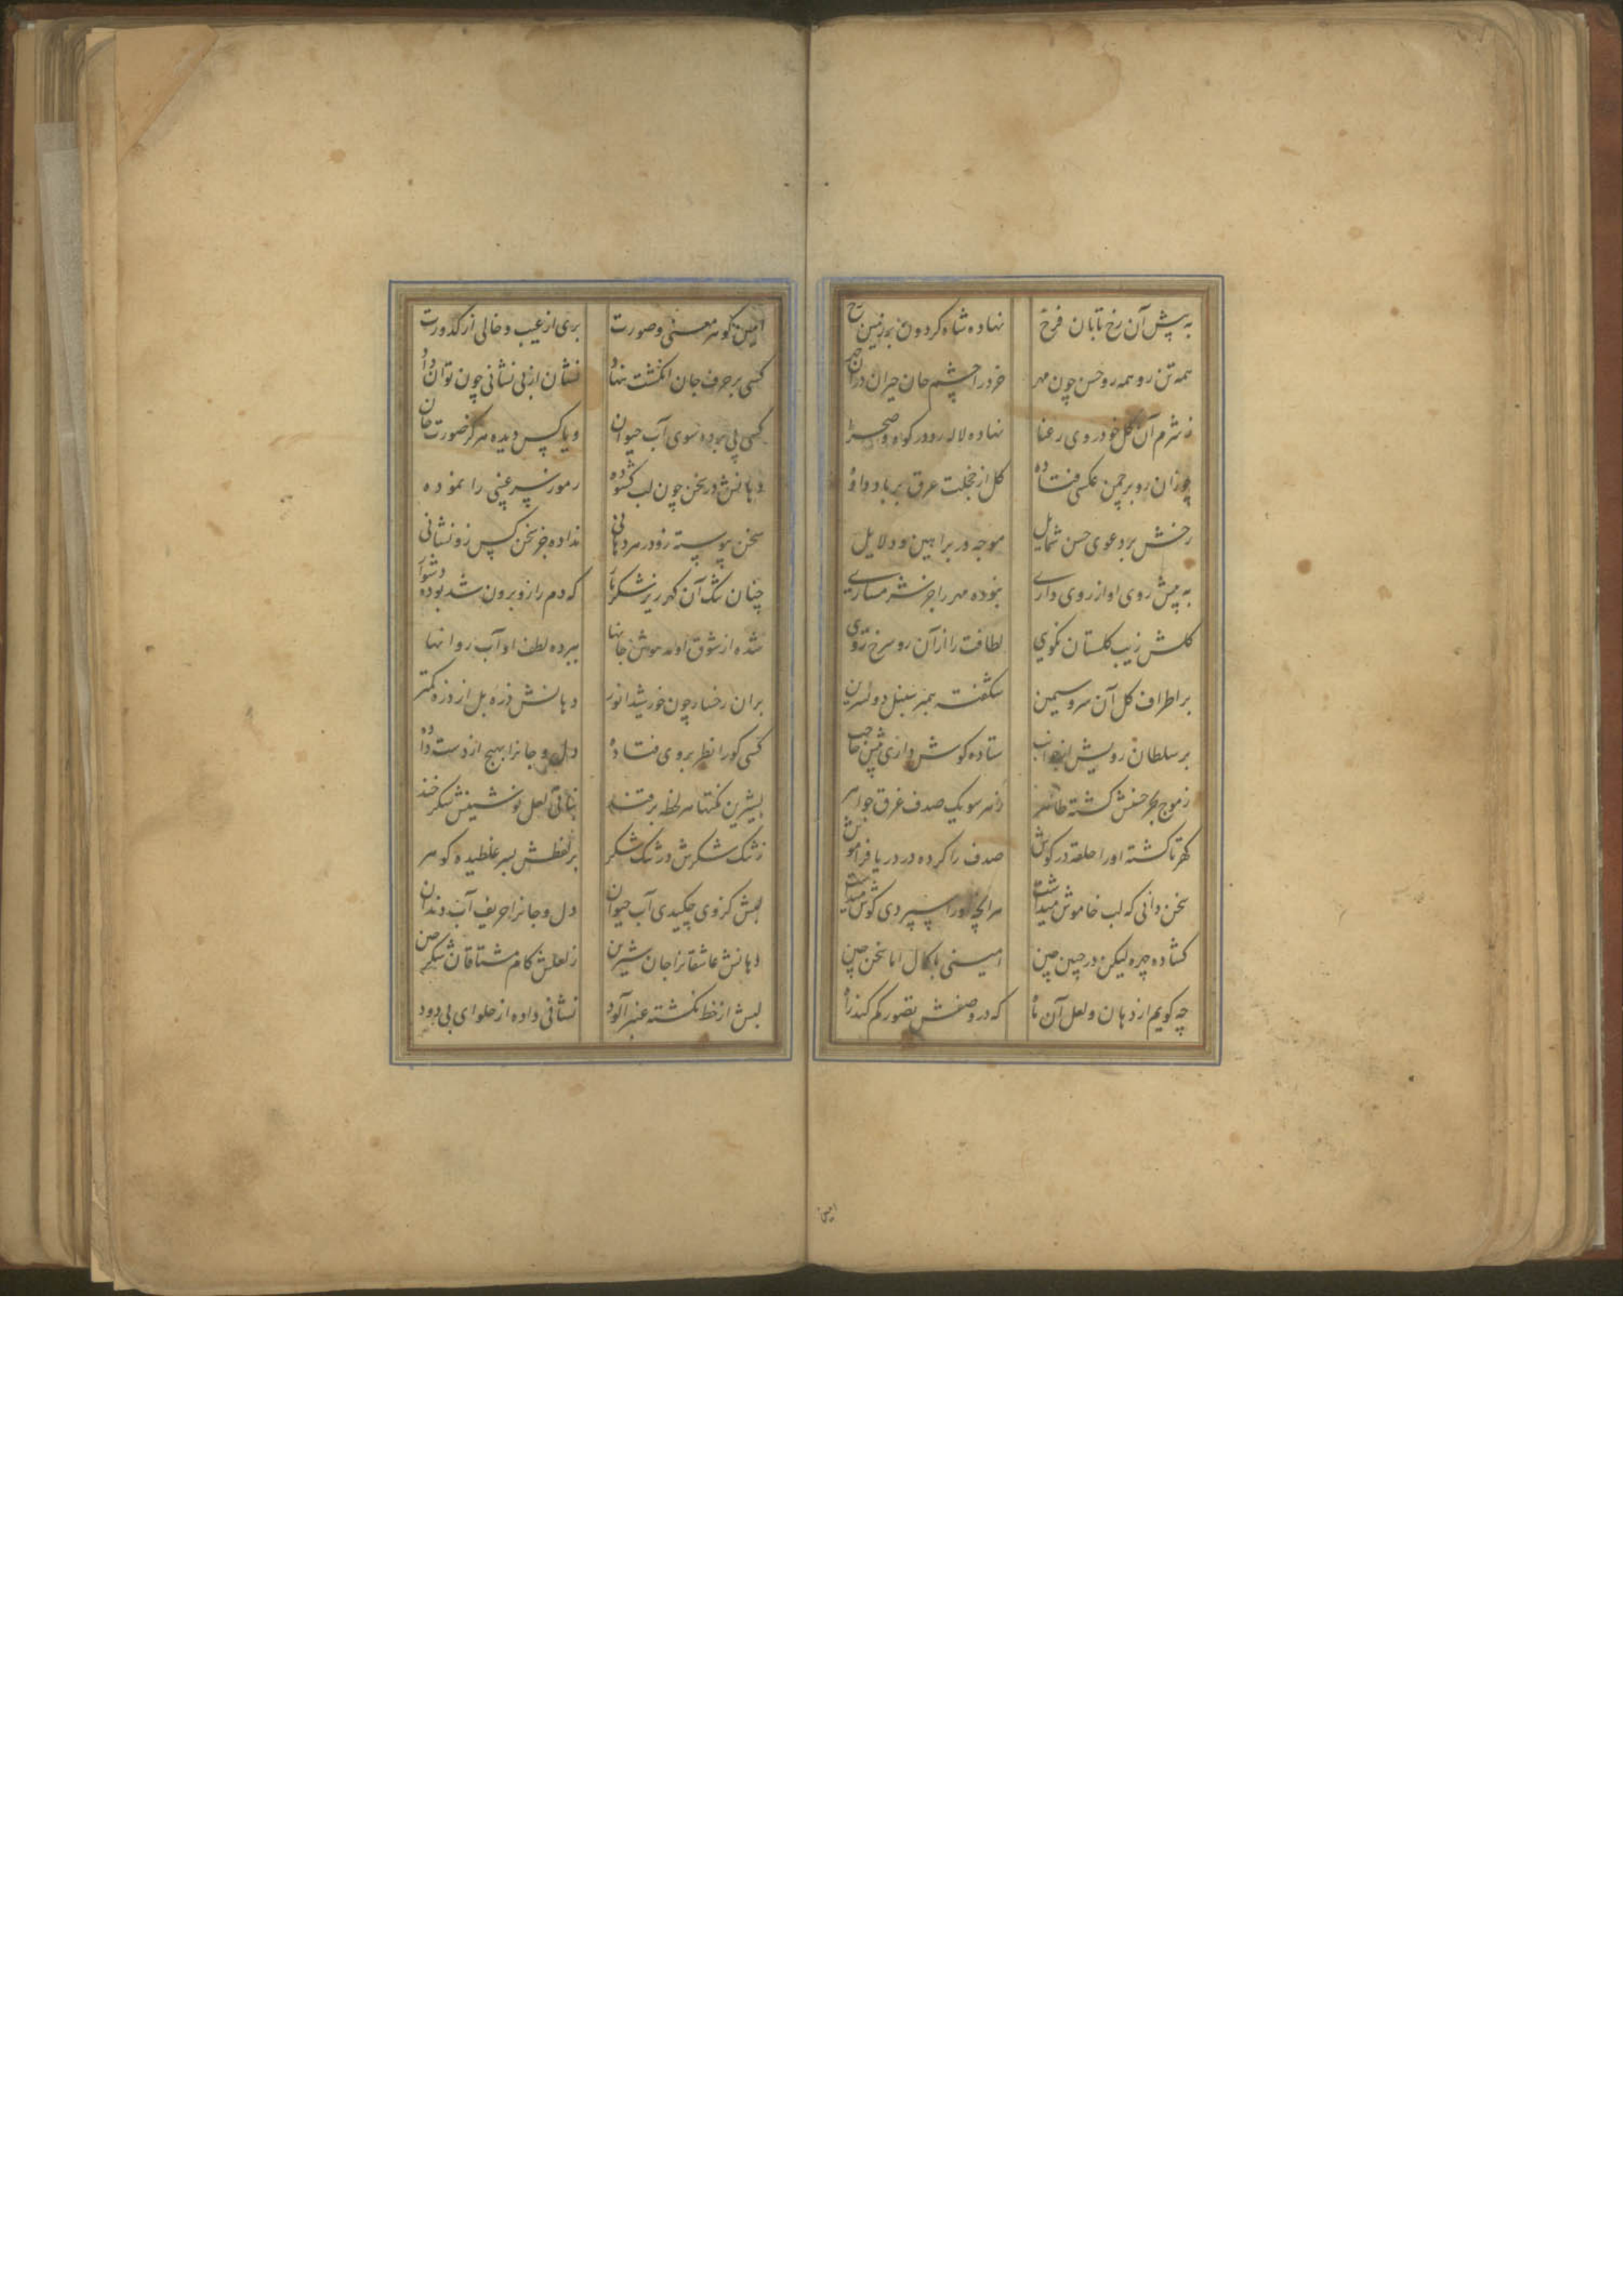 به پیش آن رخ تابان فرخ نهاده شاه کردون بر زمین رخ
همه تن رو همه رو حسن چون مهر خرد را چشم جان حیران در آن چهر
ز شرم آن گل خودروی رعنا نهاده لاله رو در کوه و صحرا
چو زان رو بر چمن عکسی فتاده گل از خجلت عرق بر باد داده
رخش بر دعوی حسن شمایل موجه در براهین و دلایل
به پیش روی او از روی داری نبوده مهر را جز شرمساری
کلش زیب کلستان نکویی لطافت را از آن رو سرخ رویی
بر اطراف کل آن سرو سیمین شکفته سنبل و نسرین
بر سلطان رویش از جوانب ستاده کوش حاجب
ز موج بحر حسنش کشته ظاهر ز هر سو یک صدف غرق جواهر
کهر تا کشته او را حلقه در کوش صدف را کرده در دریا فراموش
سخن دانی که لب خاموش میداشت هر آنچه او را سپردی کوش میداشت
کشاده چهره لیکن در چین چین امینی با کمال اما سخن چین
چه کویم از دهان و لعل آن ماه که در وصفش تصور کم کند راه
امین
امین کوهر معنی و صورت بری از عیب و خالی از کدورت
کسی بر حرف جان انکشت ننهاد نشان از بی نشانی چون توان داد
کسی پی برده سوی آب حیوان و یا کس دیده هرکز صورت جان
دهانش در سخن چون لب کشوده رموز سر غیبی را نموده
سخن پیوسته زو در هر دهانی نداده جز سخن کس زو نشانی
چنان تنک آن کهر ریز شکربار که دم را زو برون شد بوده دشوار
شده از شوق او مدهوش جانها ببرده لطف او آب روانها
بران رخسار چون خورشید انور دهانش ذره بل از ذره کمتر
کسی کو را نظر بر وی فتاده دل و جانرا بهیچ از دست داده
بشیرین نکتها هر لحظه لعل نوشینش شکرخند
ز تنک شکرش در تنک شکر بر لفظش بسر غلطیده کوهر
لبش کز وی چکیدی آب حیوان دل و جانرا حریف آب دندان
دهانش عاشقانرا جان شیرین ز لعلش کام مشتاقان شکرچین
لبش از خط نکشته عنبرآلود نشانی داده از حلوای بی دود